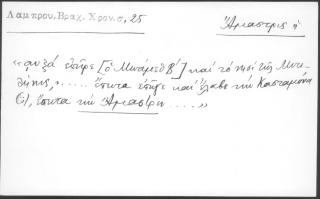 Λαμπρου, Βραχ. Χρον. σ, 25
Ἄμαστρις ἡ
« ἐπῆρε [ὁ Μωάμεθ Β'] καὶ τὸ νησὶ τῆς Μυτ-
λήνης, ..... ἔπειτα ἐπῆγε καὶ ἔλαβε τὴν Κασταμόνα
(;), ἔπειτα τὴν Ἄμαστριν ..... »